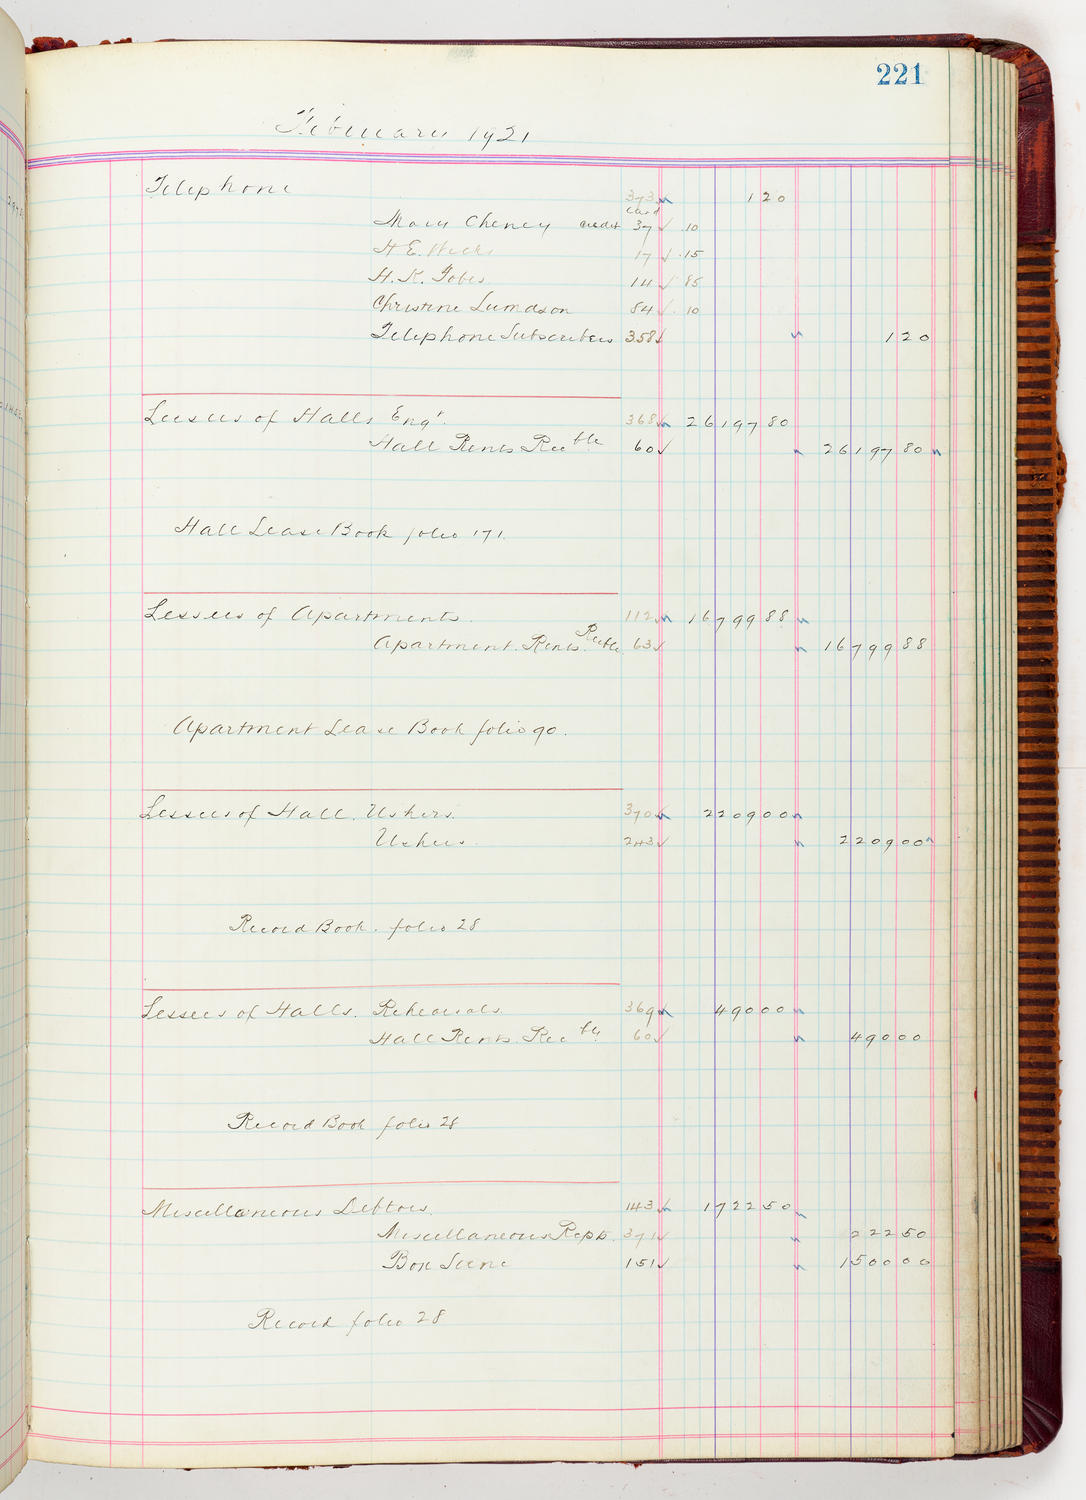 221
February 1921
Telephone 373 1 20
card
Mary Cheney credit 37 ✓ .10
H E. Hicks 17 ✓ .15
H. K. Tobes 14 ✓ 85
Christine Lumdson 84 ✓ 10
Telephone Subscribers 358 ✓ 1 20
Lessees of Halls Engt. 368 26197 80
Hall Rents Recble 60 ✓ 26197 80
Hall Lease Book folio 171.
Lessees of Apartments. 112 16799 88
Apartment Rents. Recble 63 ✓ 16799 88
Apartment Lease Book folio 90.
Lessees of Hall. Ushers. 370 2209 00
Ushers. 243 ✓ 2209 00
Record Book. folio 28
Lessees of Halls. Rehearsals. 369 490 00
Hall Rents. Recble 60 ✓ 490 00
Record Book folio 28
Miscellaneous Debtors. 143 1722 50
Miscellaneous Repts. 371 ✓ 222 50
Box Seine 151 ✓ 1500 00
Record folio 28